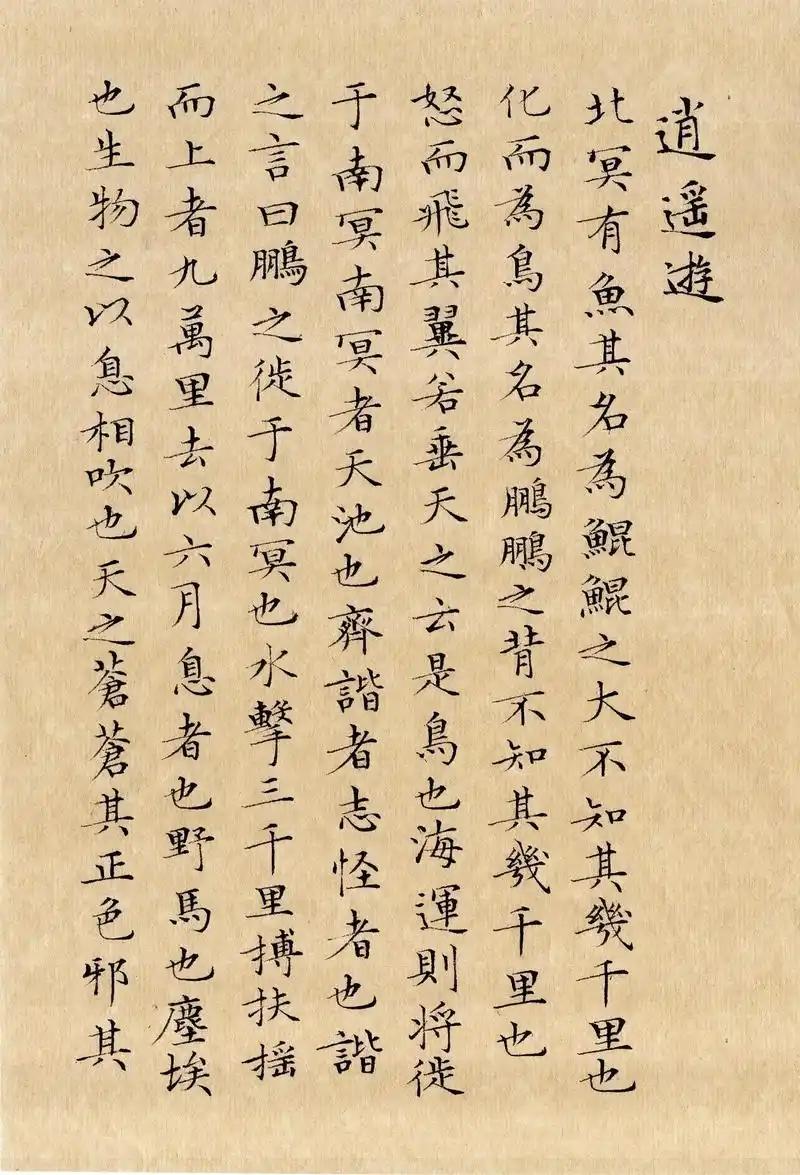 逍遥遊
北冥有魚其名為鯤鯤之大不知其幾千里也
化而為鳥其名為鵬鵬之背不知其幾千里也
怒而飛其翼若垂天之云是鳥也海運則将徙
于南冥南冥者天池也齊諧者志怪者也諧
之言曰鵬之徙于南冥也水擊三千里搏扶摇
而上者九萬里去以六月息者也野馬也塵埃
也生物之以息相吹也天之蒼蒼其正色邪其